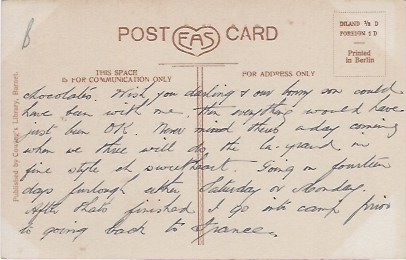 B
POST CARD
FAS
INLAND ½ D
FOREIGN 1 D
Printed
in Berlin
THIS SPACE
IS FOR COMMUNICATION ONLY
FOR ADDRESS ONLY
Published by Cowing's Library, Barnet.
chocolates. Wish you darling & our bonny son could
have been with me. Then everything would have
just been OK. Never mind theres a day coming
when we three will do the la-grand in
fine style eh sweetheart. Going on fourteen
days furlough either Saturday or Monday.
After thats finished I go into camp prior
to going back to France.